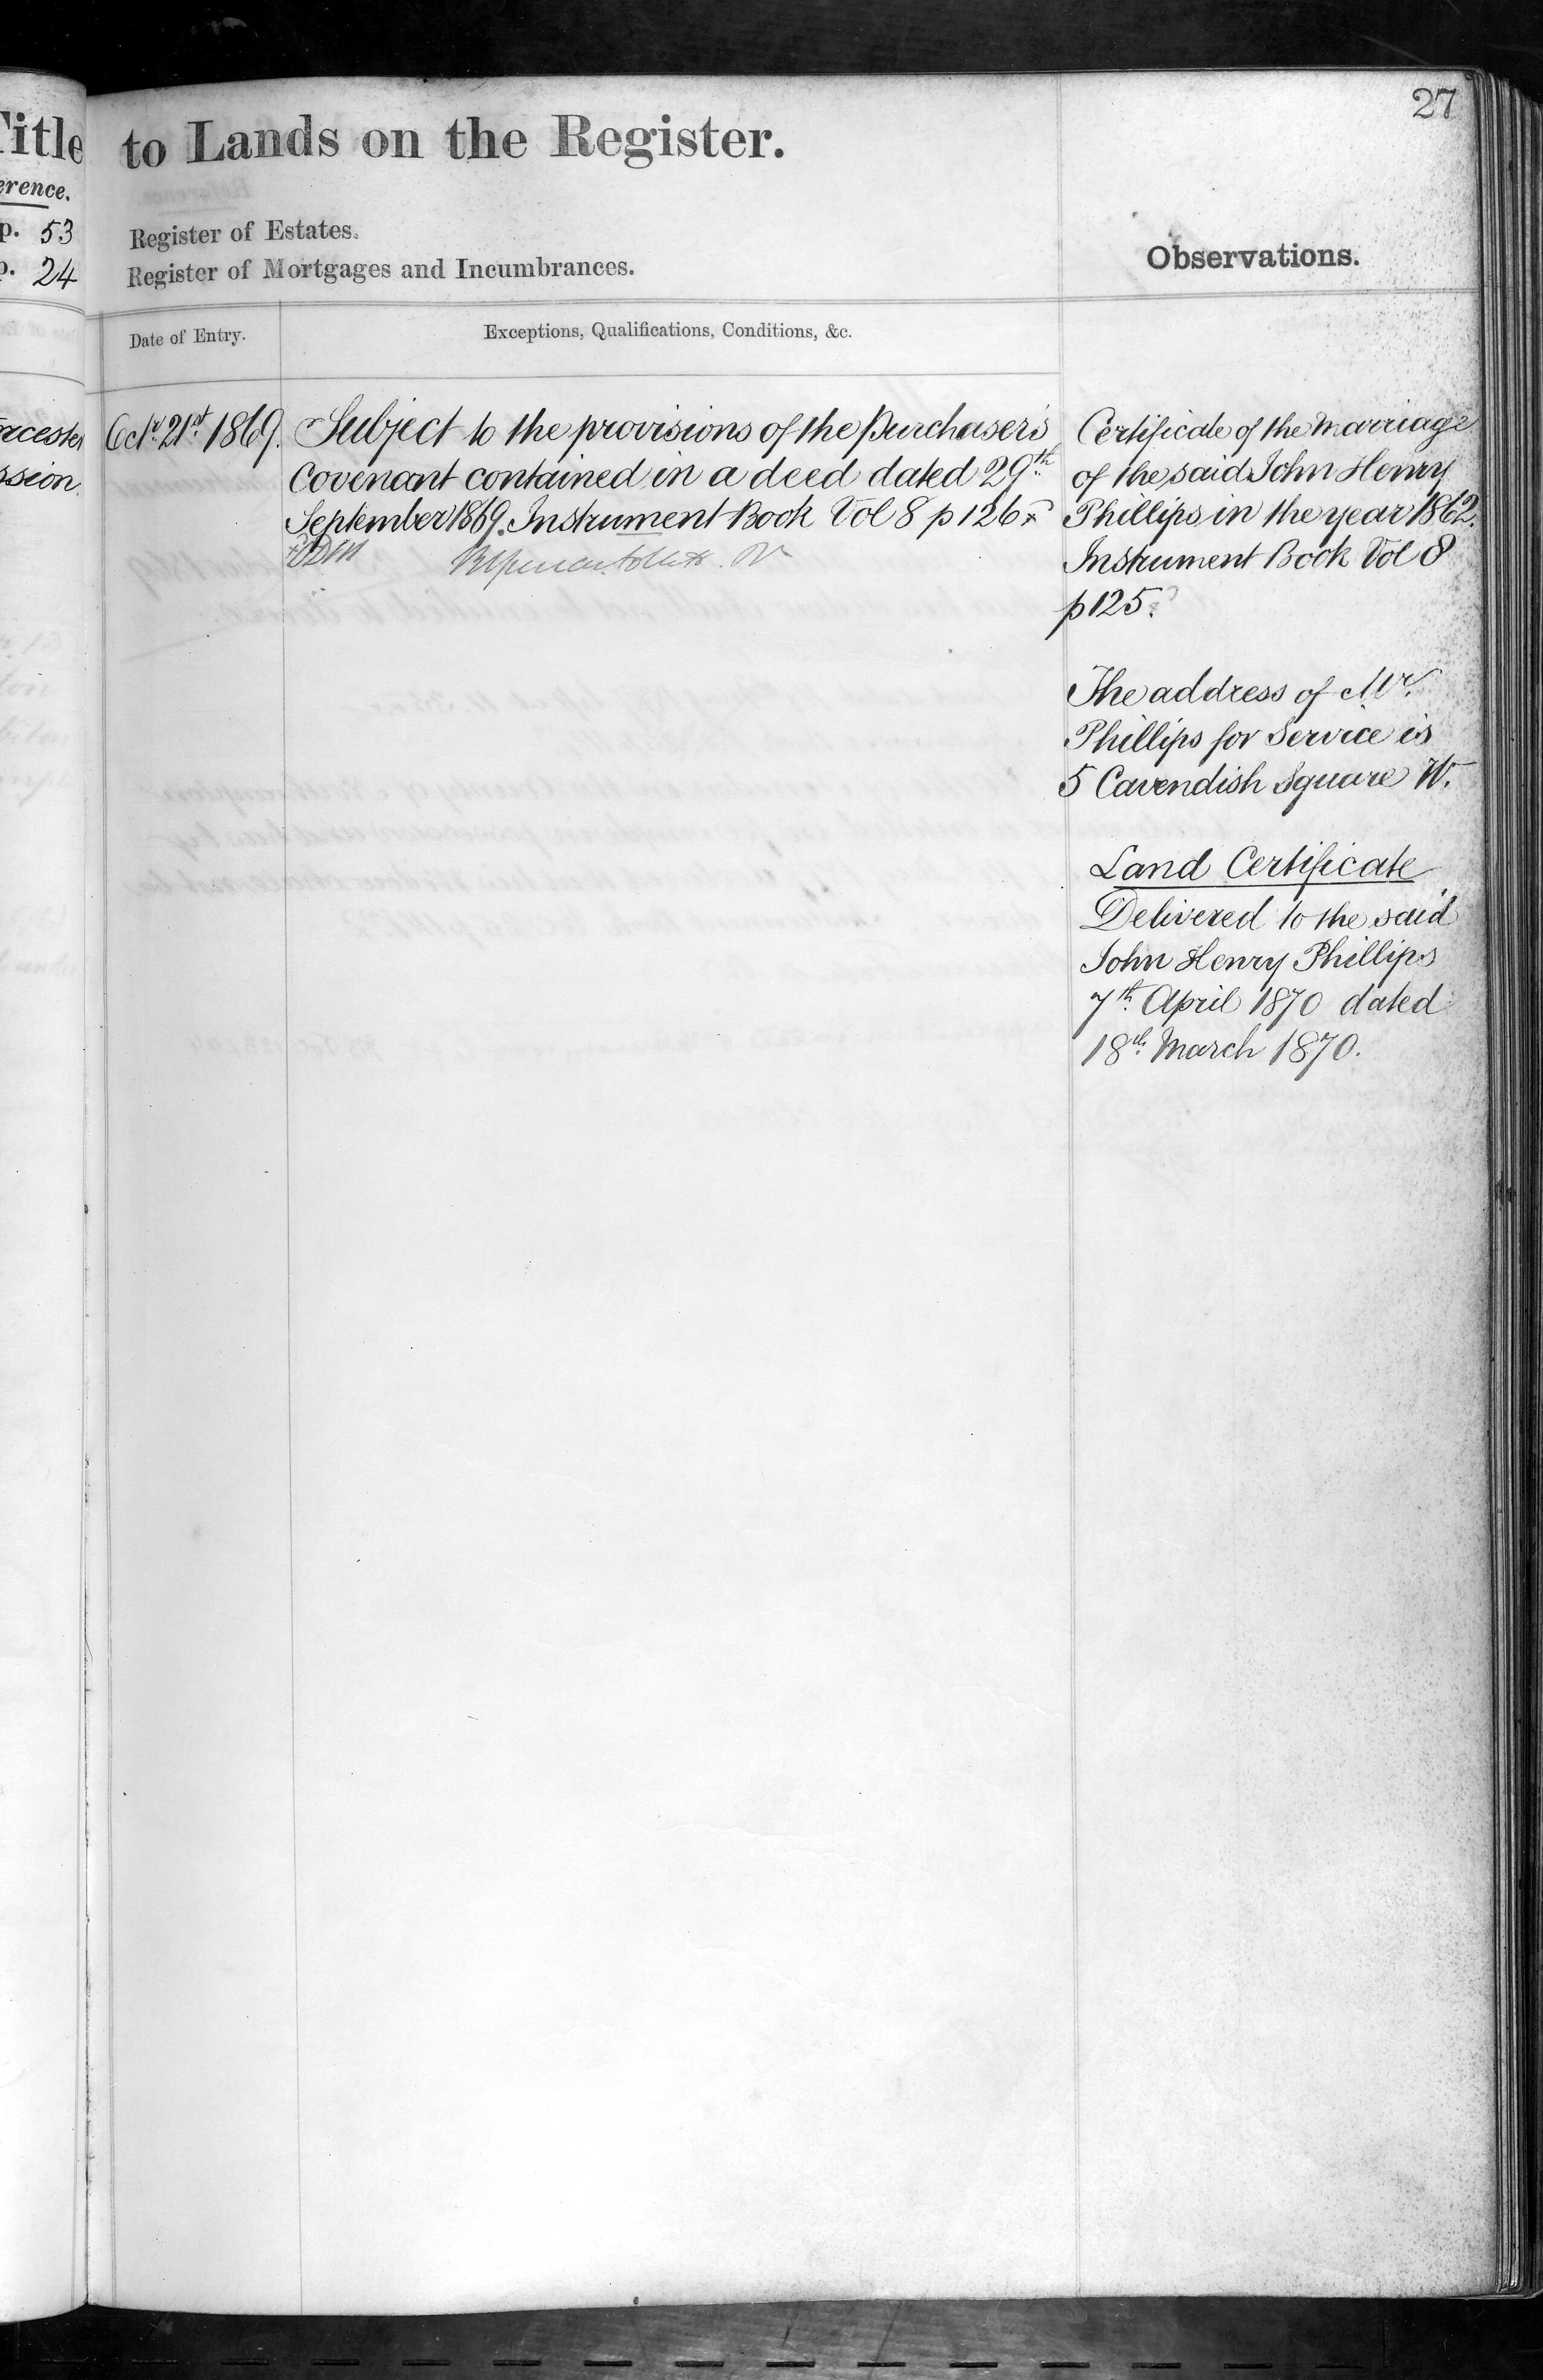 27
Title
to Lands on the Register.
erence.
p. 53
Register of Estates.
p. 24
Register of Mortgages and Incumbrances.
Observations.
Date of Entry.
Exceptions, Qualifications, Conditions, &c.
rcester
ssion
Octr. 21st 1869.
Subject to the provisions of the Purchaser's
Covenant contained in a deed dated 29th
September 1869. Instrument Book Vol 8 p 126
Certificate of the Marriage
of the said John Henry
Phillips in the year 1862.
Instrument Book Vol 8
p 125.
The address of Mr.
Phillips for Service is
5 Cavendish Square W.
Land Certificate
Delivered to the said
John Henry Phillips
7th April 1870 dated
18th March 1870.